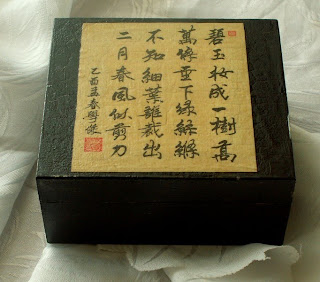 碧玉妝成一樹高
萬條垂下綠絲縧
不知細葉誰裁出
二月春風似剪刀
乙酉孟春學